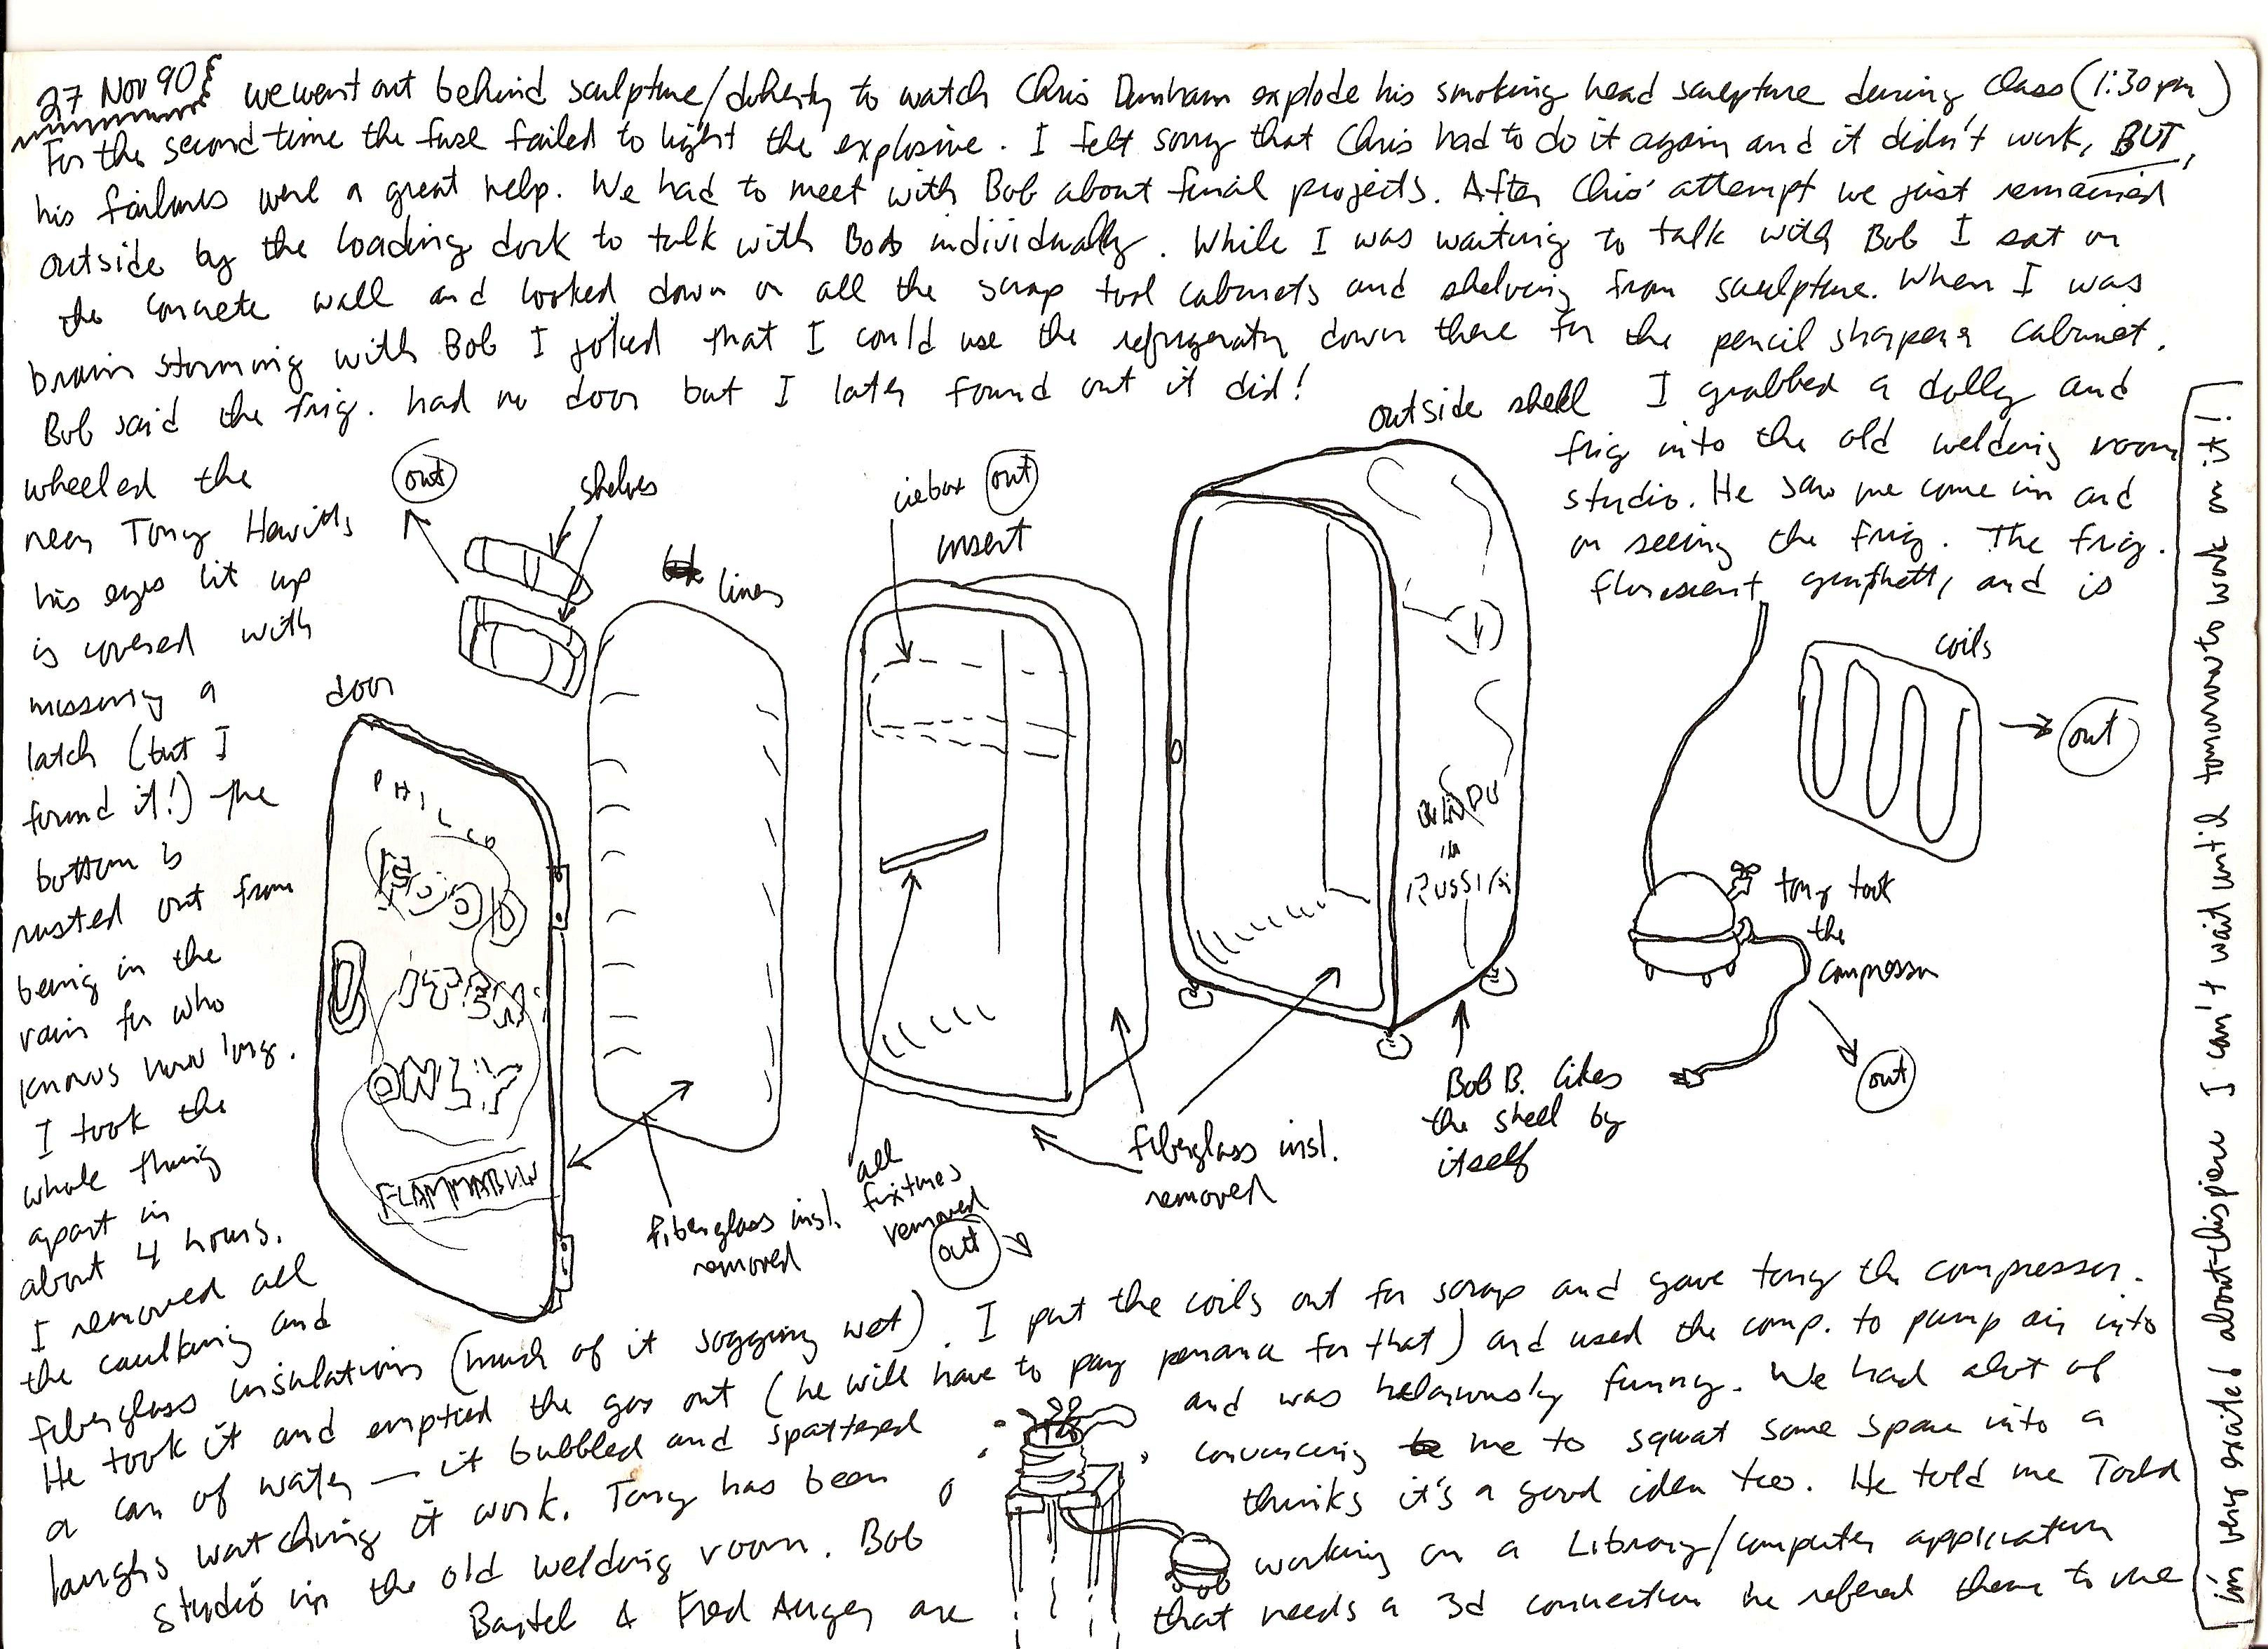 27 Nov 90 we went out behind sculpture/doherty to watch Chris Dunham explode his smoking head sculpture during class (1:30 pm)
For the second time the fuse failed to light the explosive. I felt sorry that Chris had to do it again and it didn't work, BUT,
his failures were a great help. We had to meet with Bob about final projects. After Chris' attempt we just remained
outside by the loading dock to talk with Bob individually. While I was waiting to talk with Bob I sat on
the concrete wall and looked down on all the scrap tool cabinets and shelving from sculpture. When I was
brain storming with Bob I joked that I could use the refrigerator down there for the pencil sharpener cabinet.
Bob said the frig. had no door but I later found out it did! I grabbed a dolly and
wheeled the frig into the old welding room
near Tony Hewitts studio. He saw me come in and
his eyes lit up on seeing the frig. The frig.
is covered with florescent graffetti, and is
missing a
latch (but I
found it!) the
bottom is
rusted out from
being in the
rain for who
knows how long.
I took the
whole thing
apart in
about 4 hours.
I removed all
the caulking and
fiberglass insulation (much of it sogging wet). I put the coils out for scrap and gave tony the compressor.
He took it and emptied the gas out (he will have to pay penance for that) and used the comp. to pump air into
a can of water — it bubbled and spattered and was helariously funny. We had alot of
laughs watching it work. Tony has been convincing me to squat some space into a
studio in the old welding room. Bob thinks it's a good idea too. He told me Todd
Bartel & Fred Auger are working on a Library/computer application
that needs a 3d connection he refered them to me
out
shelves
liner
icebox out
insert
outside shell
coils
out
door
PHILCO
FOOD
ITEMS
ONLY
FLAMMABLE
IN
RUSSIA
tony took
the
compressor
out
Bob B. likes
the shell by
itself
fiberglass insl.
removed
all
fixtures
removed
out
fiberglass insl.
removed
i'm very excited about this piece I can't wait until tomorrow to work on it!